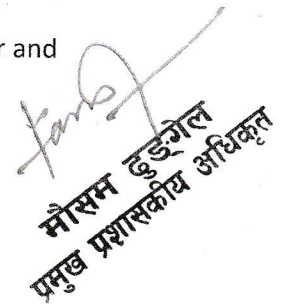 r and
मौसम ढुङ्गेल
प्रमुख प्रशासकीय अधिकृत